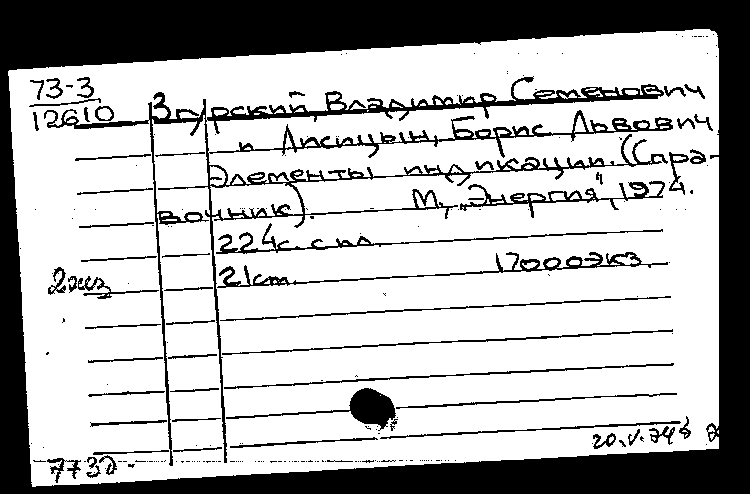 73-3
12610
Згурский, Владимир Семенович
и Лисицын, Борис Львович
Элементы индикации. (Спра-
вочник). М., „Энергия", 1974.
224с. с ил.
2 экз
21cm. 17000 экз.
20.V.74